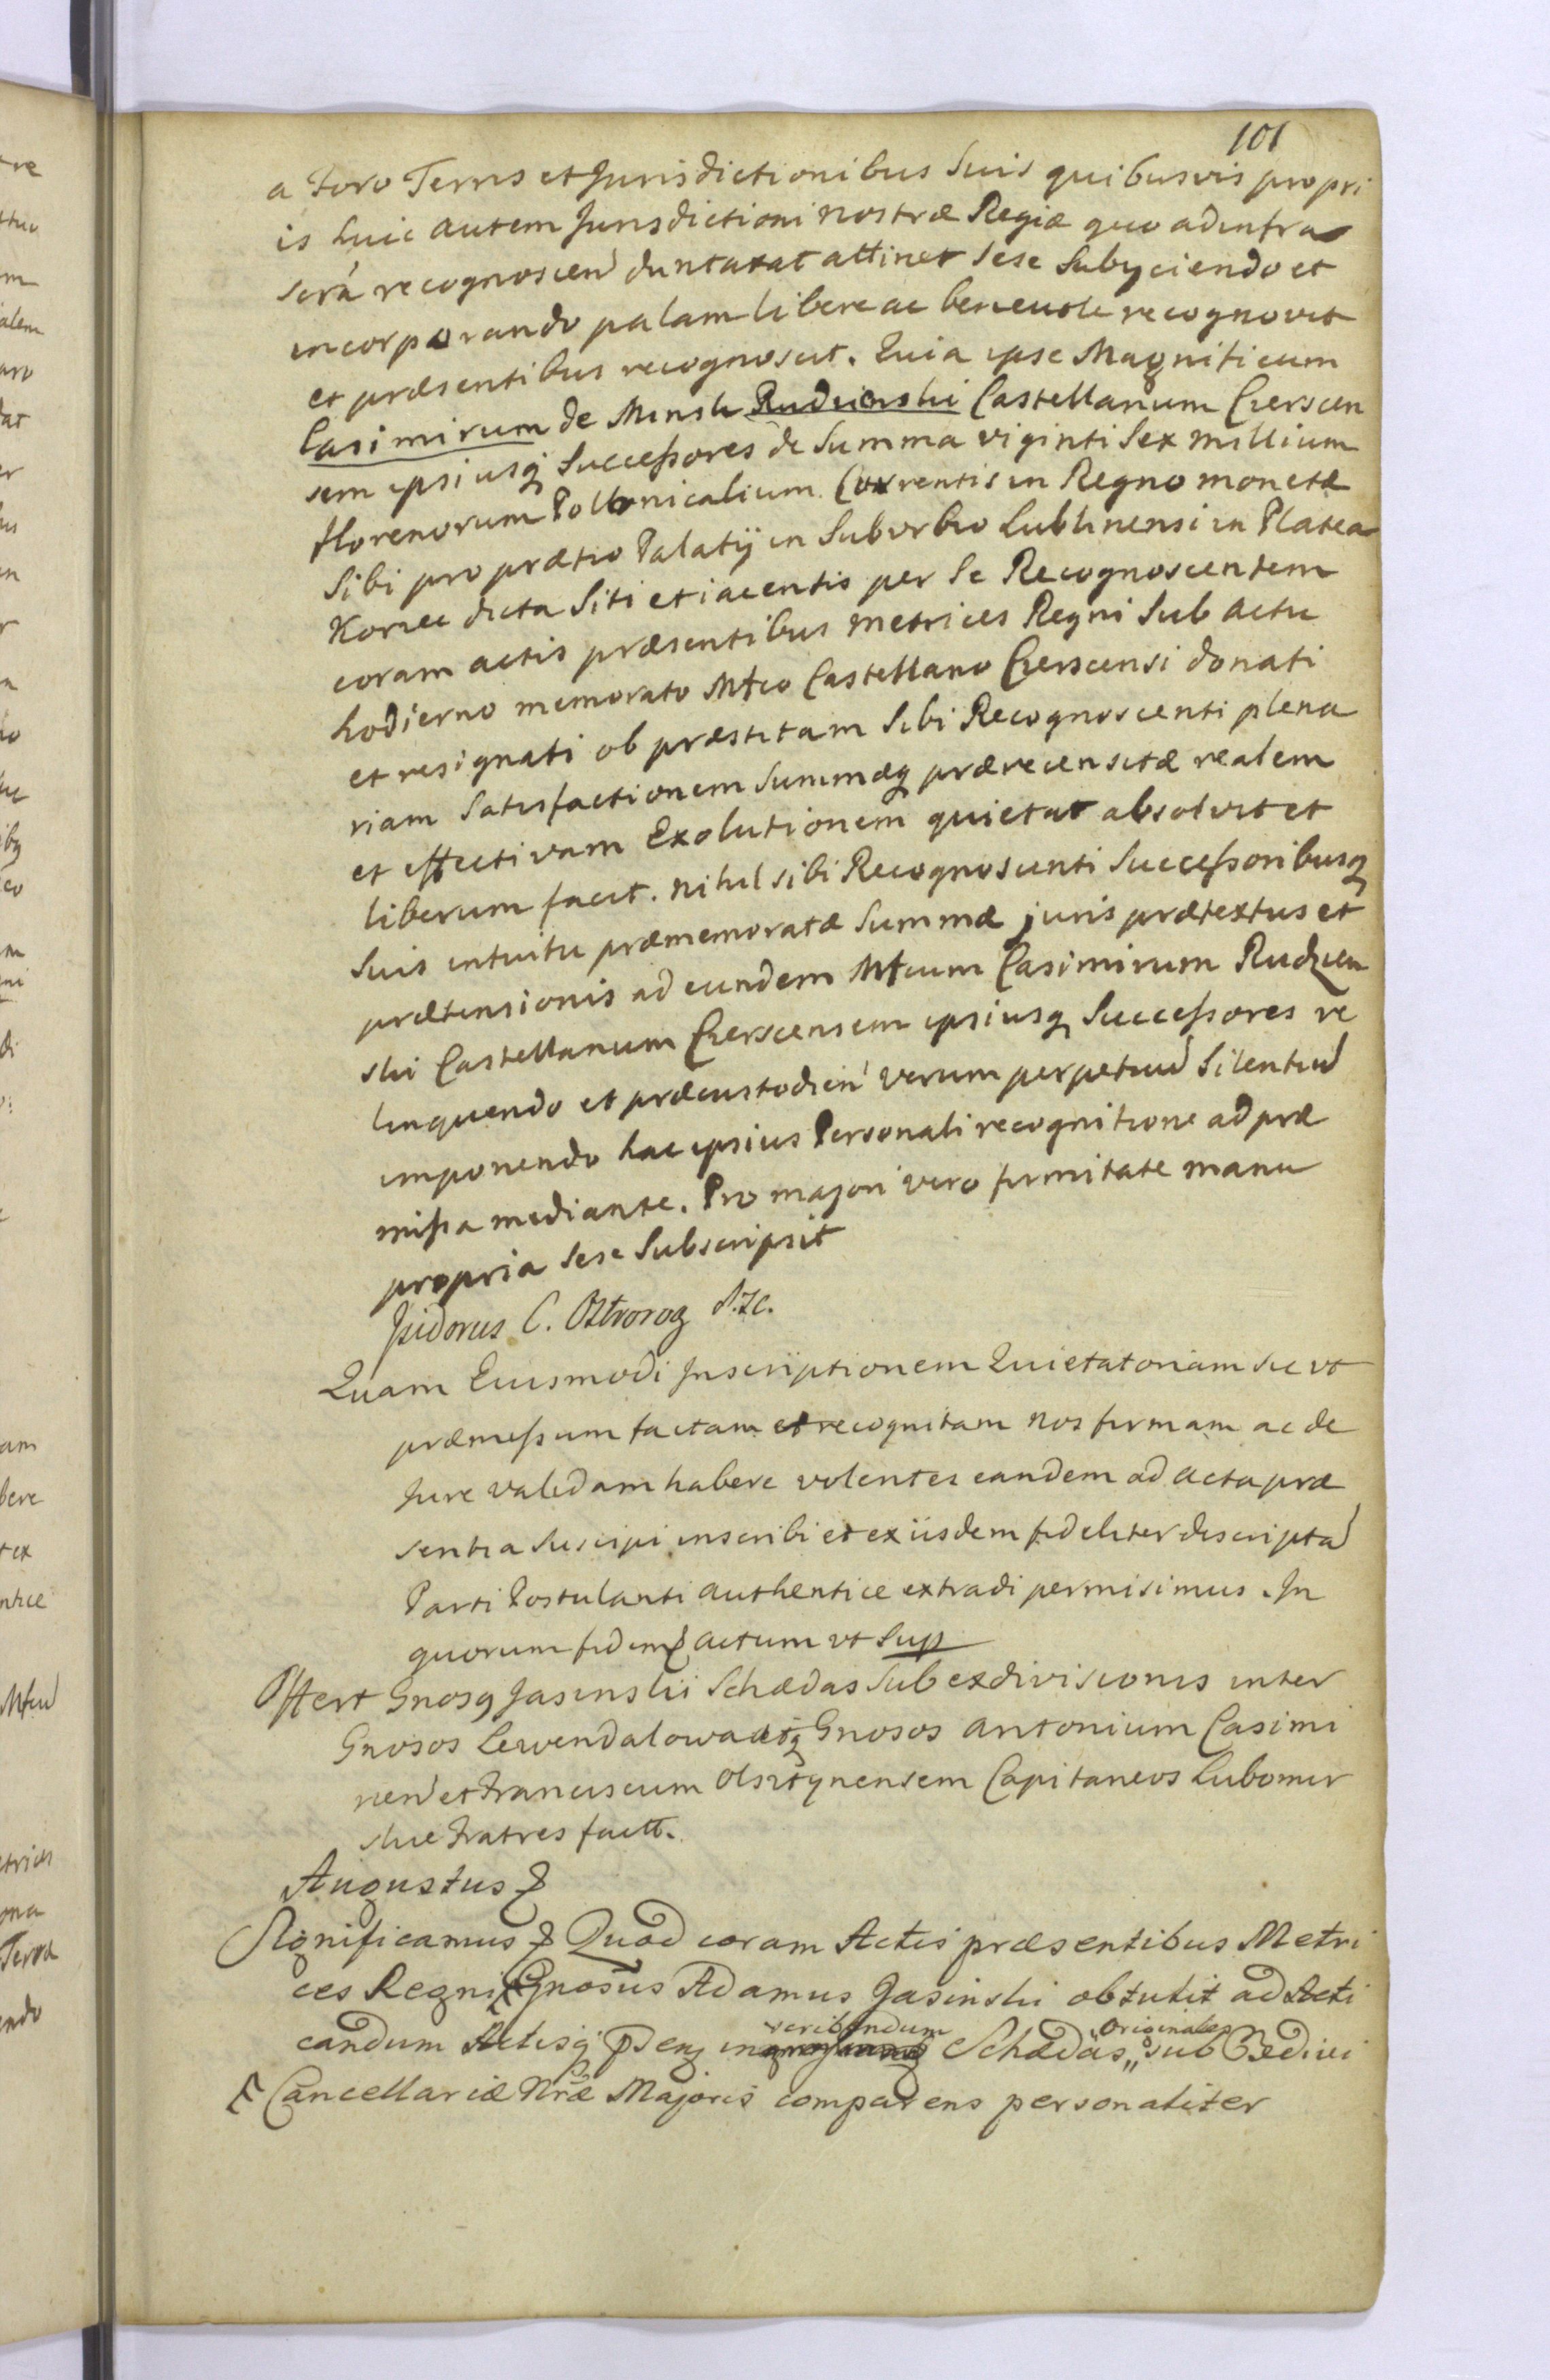 101
a Foro Terris et Jurisdictionibus Suis quibusvis propri
is huic autem Jurisdictioni nostræ Regiæ quo ad infra
scrá recognoscen duntaxat attinet sese Subyciendo et
incorporando palam libere ac benevole recognovit
et præsentibus recognoscit. Quia ipse Magnificum
Casimirum de Minsk Rudzienski Castellanum Czerscen
sem ipsiusq Successores de Summa viginti Sex millium
florenorum Pollonicalium Currentis in Regno monetæ
Sibi pro prætio Palatÿ in Suburbio Lublinensi in Platea
Korzec dicta Siti et iacentis per Se Recognoscentem
coram actis præsentibus metrices Regni Sub actu
hodierno memorato Mfco Castellano Czerscensi donati
et resignati ob præstitam Sibi Recognoscenti plena
riam Satisfactionem Summæq prærecensitæ realem
et effectivam Exolutionem quietat absolvit et
liberum facit. nihil sibi Recognoscenti Successoribusq
Suis intuitu præmemoratæ Summæ juris prætextus et
prætensionis ad eundem Mfcum Casimirum Rudzien
ski Castellanum Czerscensem ipsiusq Successores re
linquendo et præcustodien verum perpetuu Silentiu
imponendo hac ipsius Personali recognitione ad præ
missa mediante. Pro majori vero firmitate manu
propria sese Subscripsit
Isidorus C. Osztrorog S.Z.C.
Quam Eiusmodi Inscriptionem Quietatoriam sic ut
præmissum factam et recognitam nos firmam ac de
Jure validam habere volentes eandem ad acta præ
sentia Suscipi inscribi et ex iisdem fideliter descripta
Parti Postulanti authentice extradi permisimus. In
quorum fidem & actum ut Sup
Offert Gnosq Jasinskii Schædas Subexdivisionis inter
Gnosos Lewendalowa atq Gnosos Antonium Casimi
rien et Franciscum Olsztynensem Capitaneos Lubomir
skie Fratres factt.
Augustus &
Significamus & Quod coram Actis præsentibus Metri
ces Regni Gnosus Adamus Jasinski obtulit ad Acti
candum Actisq psenq inscribendum Schædas originales sub Exdivi
Cancellariæ Nræ Majoris comparens personaliter